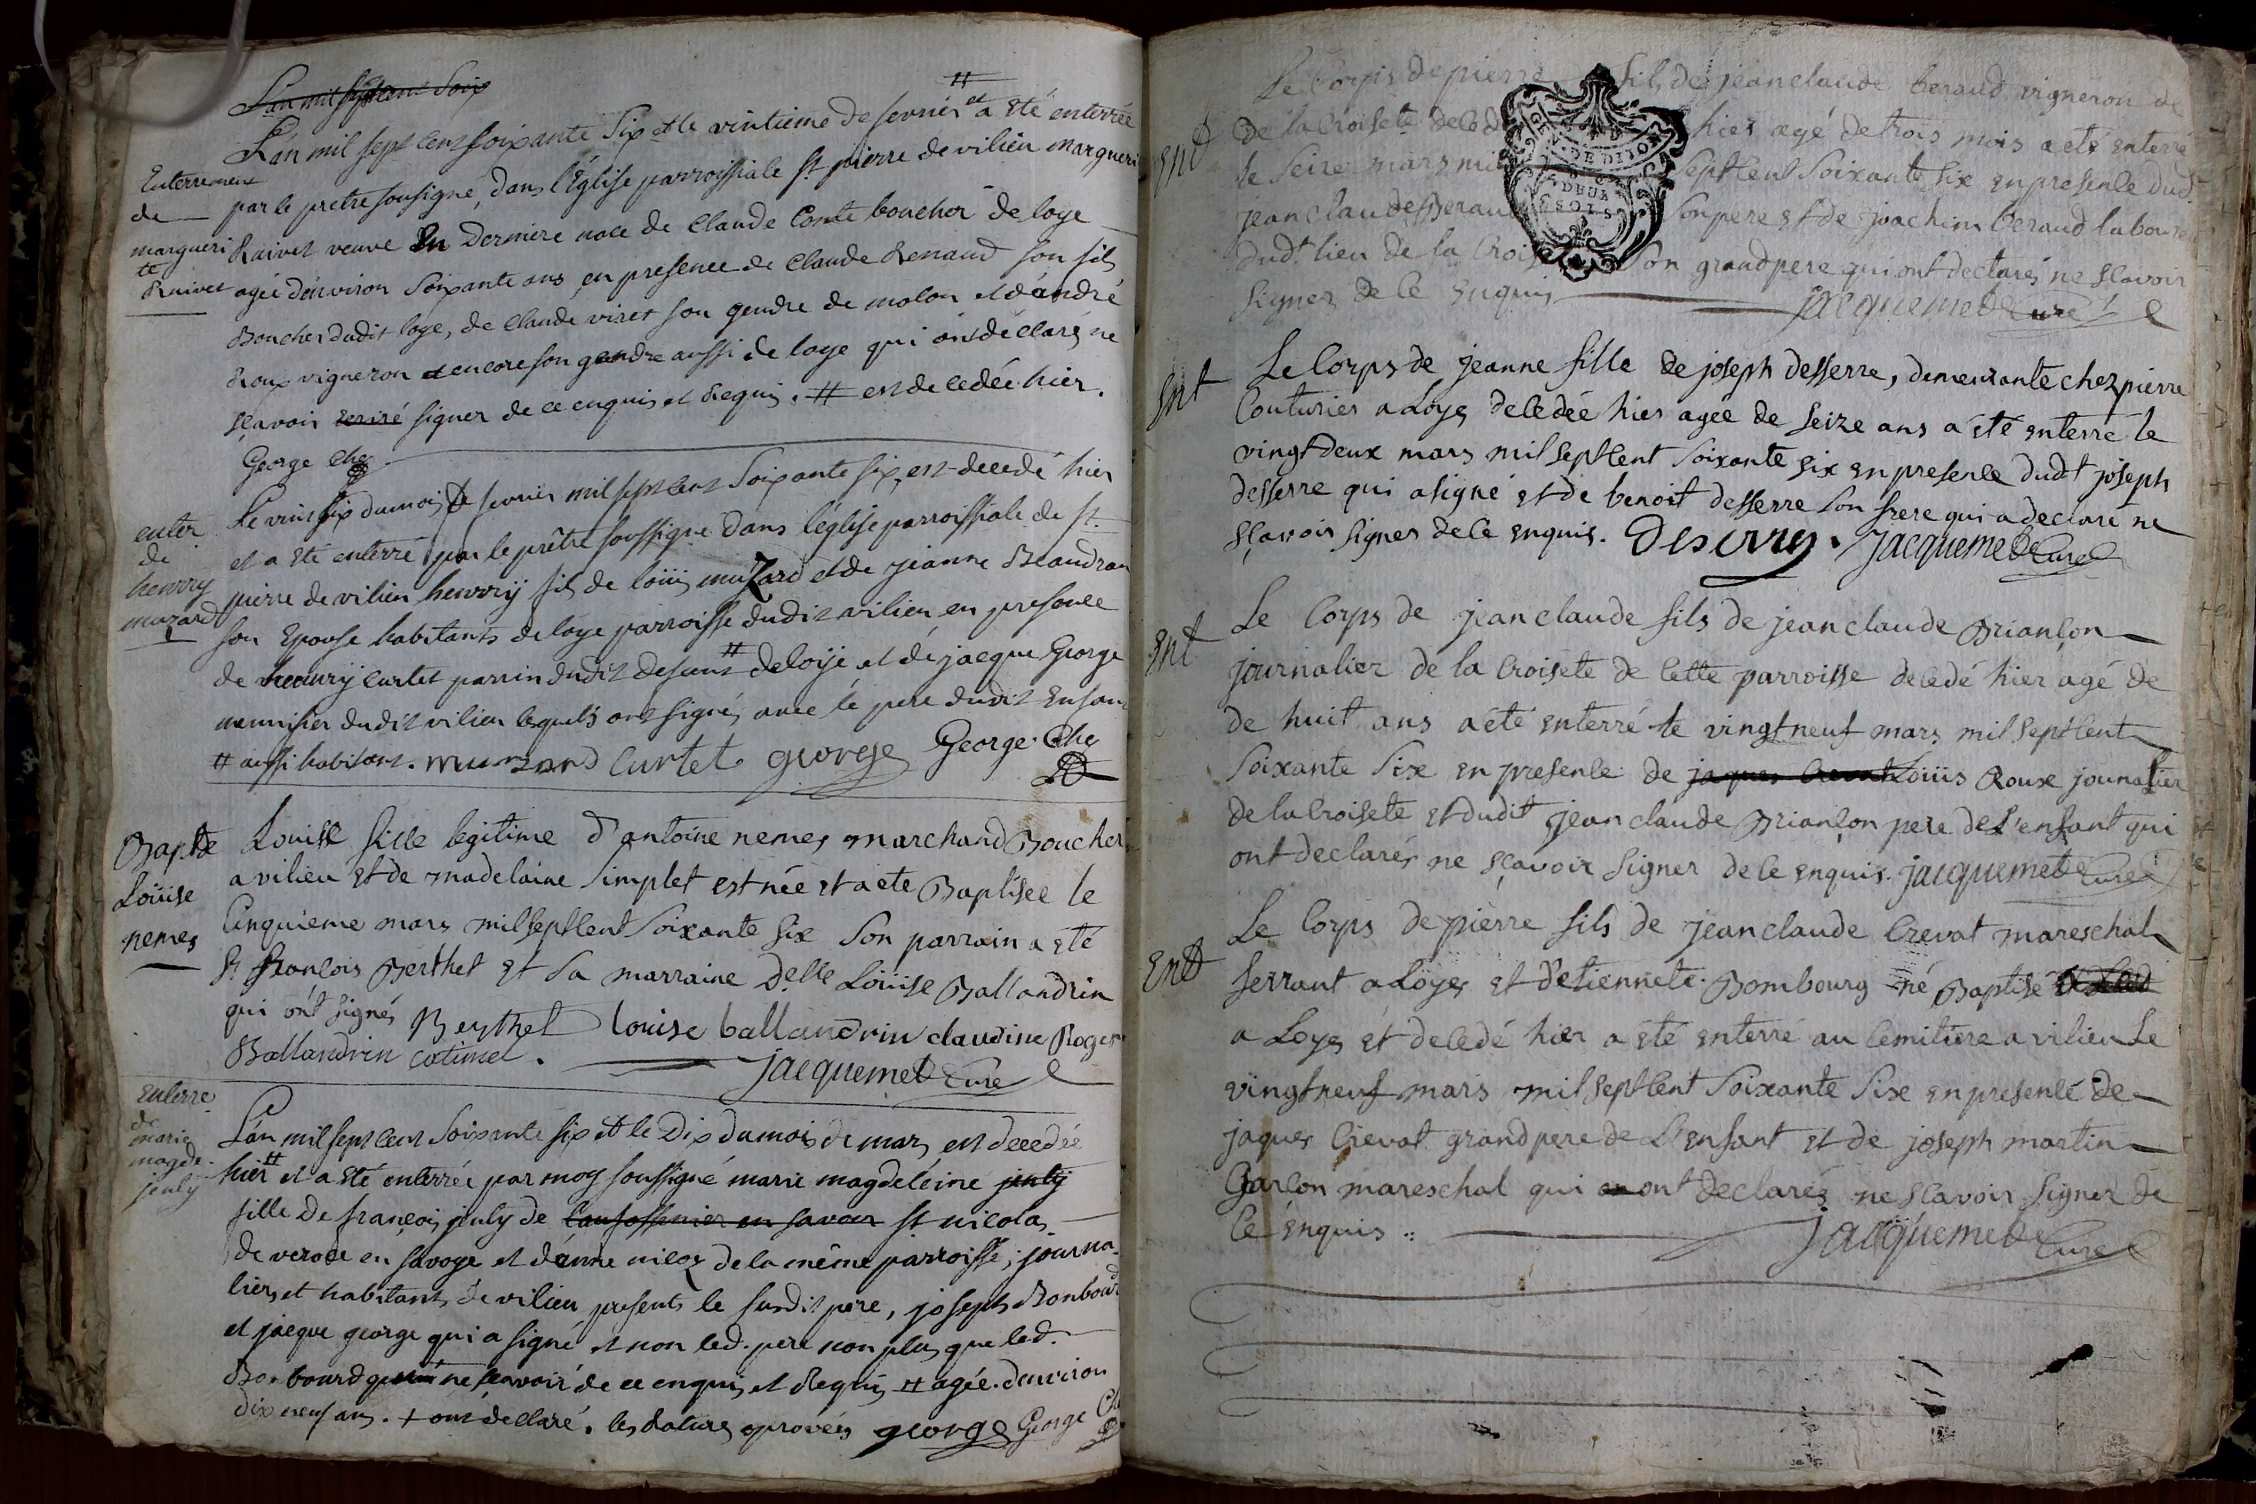 L'an mil sept cent soix
L'an mil sept cent soixante six et le vintieme de fevrier # et a eté enterrée
Enterrement de margueri te Ruivet
par le pretre sousigné, dans l'Église parroissiale st pierre de vilieu margueri
Ruivet veuve En Derniere noce de Claude Comte boucher de loye
agée denviron soixante ans en presence de Claude Renaud son fils
Boucher dudit loye, de Claude viret son gendre de molon et d'andré
Roux vigneron et encore son gendre aussi de loye qui ont déclaré ne
sçavoir ecrire signer de ce enquis et Requis. # est decedée hier.
George
enter de henrry muzard
Le vint six du mois de fevrier mil sept cent soixante six, est decedé hier
et a eté enterré par le prêtre soussigné dans l'église parroissiale de st.
pierre de vilieu henrry fils de loüis muzard et de jeanne Beaudran
son Epouse habitants de loye parroisse dudit vilieu en presence
de heanry curtet parrin dudit defunt # de loye et de jacque George
meunier dudit vilieu lequels ont signé, avec le pere dudit Enfant
# aussi habitant. muzard Curtet george George
Bapte Loüise nemes
Louise fille legitime d'antoine nemes marchand Boucher
a vilieu et de madelaine simplet est née et a eté Baptisée le
Cinquieme mars mil sept cent soixante six son parrain a eté
sr françois Berthet et sa marraine delle Loüise Ballandrin
qui ont signés Berthet louise ballandrin claudine Roger
Ballandrin catimel. jacquemet Curé
Enterre de marie magde. jenly
L'an mil sept cent soixante six et le Dix du mois de mars est decedée
hier # et a eté enterrée par moy soussigné marie magdeléine jenly
fille de françois jenly de st nicolas
de veroce en savoye et d'anne nicoz de la même parroisse, journa-
liers et habitants de vilieu presents le susdit pere, joseph Bonbourd
et jacque george qui a signé et non led. pere non plus que led.
Bonbourd ne sçavoir de ce enquis et Requis # agée denviron
dix neuf ans. + ont declaré. les ratures aprovées george George
Le Corps de pierre fils de jean claude beraud vigneron de
Ent
de la Croisete deced hier agé de trois mois a eté enterré
le seize mars mil sept cent soixante six en presence dudt
jean claude Beraud son pere et de joachim beraud laboureur
dudt lieu de la Crois son grand pere qui ont declarés ne sçavoir
signer de ce enquis jacquemet Curé
GEN. DE DIJON
DEUX
SOLS
Ent
Le Corps de jeanne fille de joseph desserre, demeurante chez pierre
Couturier a Loyes decedée hier agée de seize ans a eté enterré le
vingt deux mars mil sept cent soixante six en presence dudt joseph
desserre qui a signé et de benoit desserre son frere qui a declaré ne
sçavoir signer de ce enquis. Deserre. jacquemet Curé
Ent
Le Corps de jean claude fils de jean claude Briançon
journalier de la Croisete de cette parroisse decedé hier agé de
de huit ans a eté enterré le vingt neuf mars mil sept cent
soixante six en presence de jaques Crevat Loüis Roux jounalier
de la Croisete et dudit jean claude Briançon pere de l'enfant qui
ont declarés ne sçavoir signer de ce enquis. jacquemet Curé
Ent
Le Corps de pierre fils de jean claude Crevat mareschal
ferrant a Loyes et d'etiennete Bombourg né Baptisé
a Loyes et decedé hier a eté enterré au Cemitiere a vilieu le
vingt neuf mars mil sept cent soixante six en presence de
jaques Crevat grand pere de l'enfant et de joseph martin
Garçon mareschal qui ont declarés ne sçavoir signer de
ce enquis .. jacquemet Curé